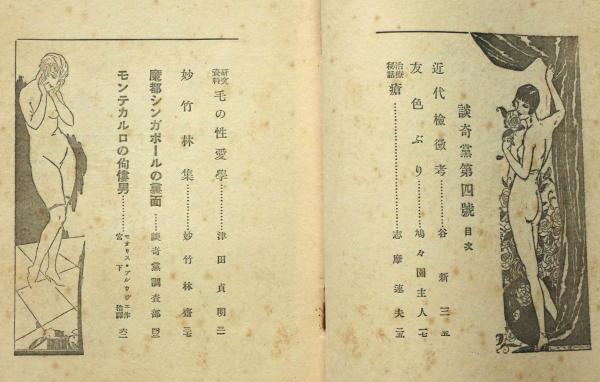 談奇黨第四號 目次
近代檢黴考…………谷新三 五
友色ぶり…………鳩々園主人 一七
治療秘話 瘡…………志摩達夫
研究資料 毛の性愛學…………津田貞明
妙竹林集…………妙竹林齋
魔都シンガポールの裏面…………談奇黨調査部
モンテカルロの佝僂男…………モオリス・ 作 宮下 譯